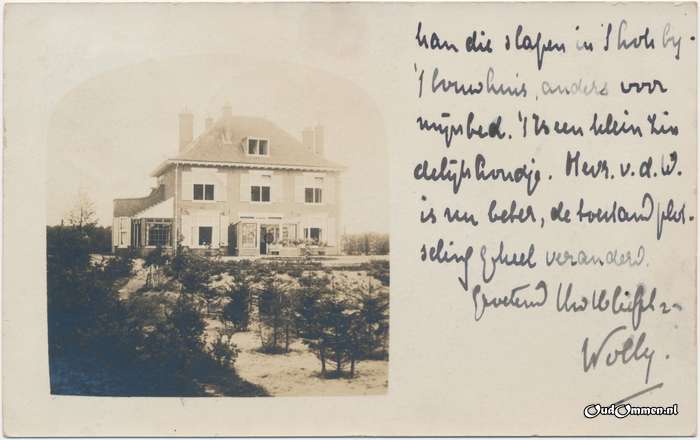 kan die slapen in 't hok by
't bouwhuis, anders voor
mijn bed. 't Is een klein zin
delijk hondje. Mevr. v. d. W.
is nu beter, de toestand plot-
seling geheel veranderd.
Groetend
Wolly.
OudOmmen.nl